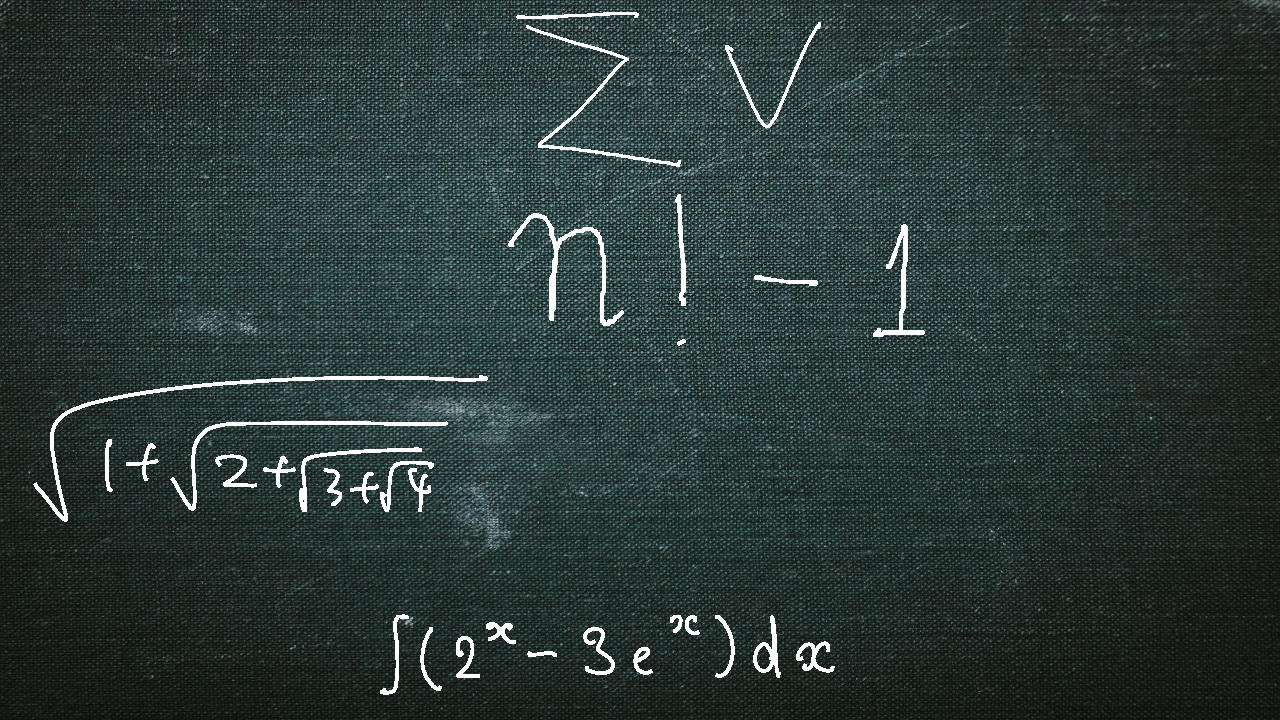 ∑ V
n! - 1
√(1+√(2+√(3+√4)))
∫(2^x - 3e^x)dx